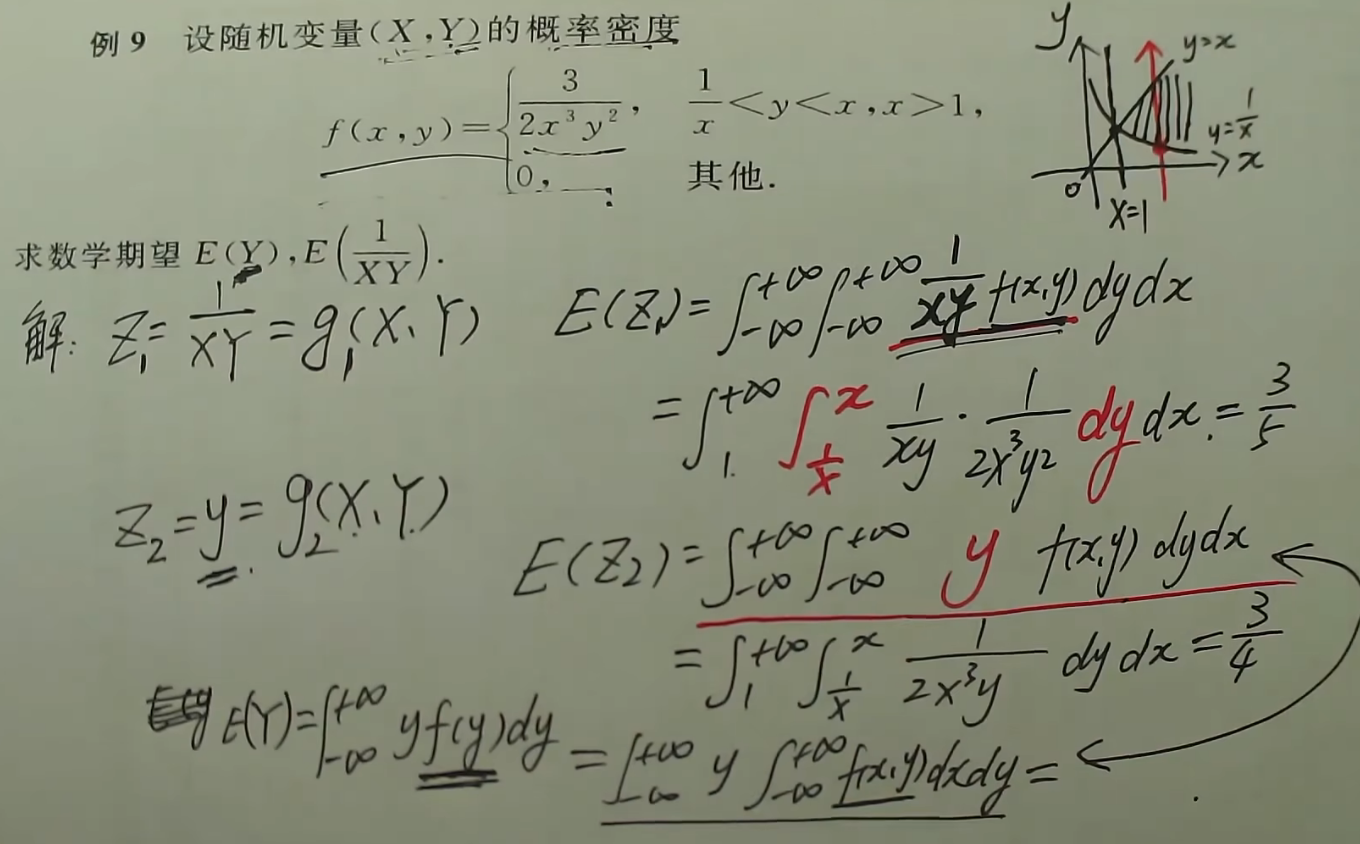 例9 设随机变量(X,Y)的概率密度
f(x,y)={ 3/(2x³y²), 1/x<y<x,x>1,
0, 其他.
y
y=x
y=1/x
x
0
X=1
求数学期望 E(Y),E(1/XY).
解: Z₁= 1/XY = g₁(X、Y) E(Z₁)= ∫₋∞^+∞ ∫₋∞^+∞ 1/xy f(x,y) dy dx
= ∫₁^+∞ ∫_{1/x}^x 1/xy · 1/2x³y² dy dx. = 3/5
Z₂=y= g₂(X、Y) E(Z₂)= ∫₋∞^+∞ ∫₋∞^+∞ y f(x,y) dy dx
= ∫₁^+∞ ∫_{1/x}^x 1/2x³y dy dx = 3/4
E(Y)= ∫₋∞^+∞ y f(y) dy = ∫₋∞^+∞ y ∫₋∞^+∞ f(x,y) dx dy =